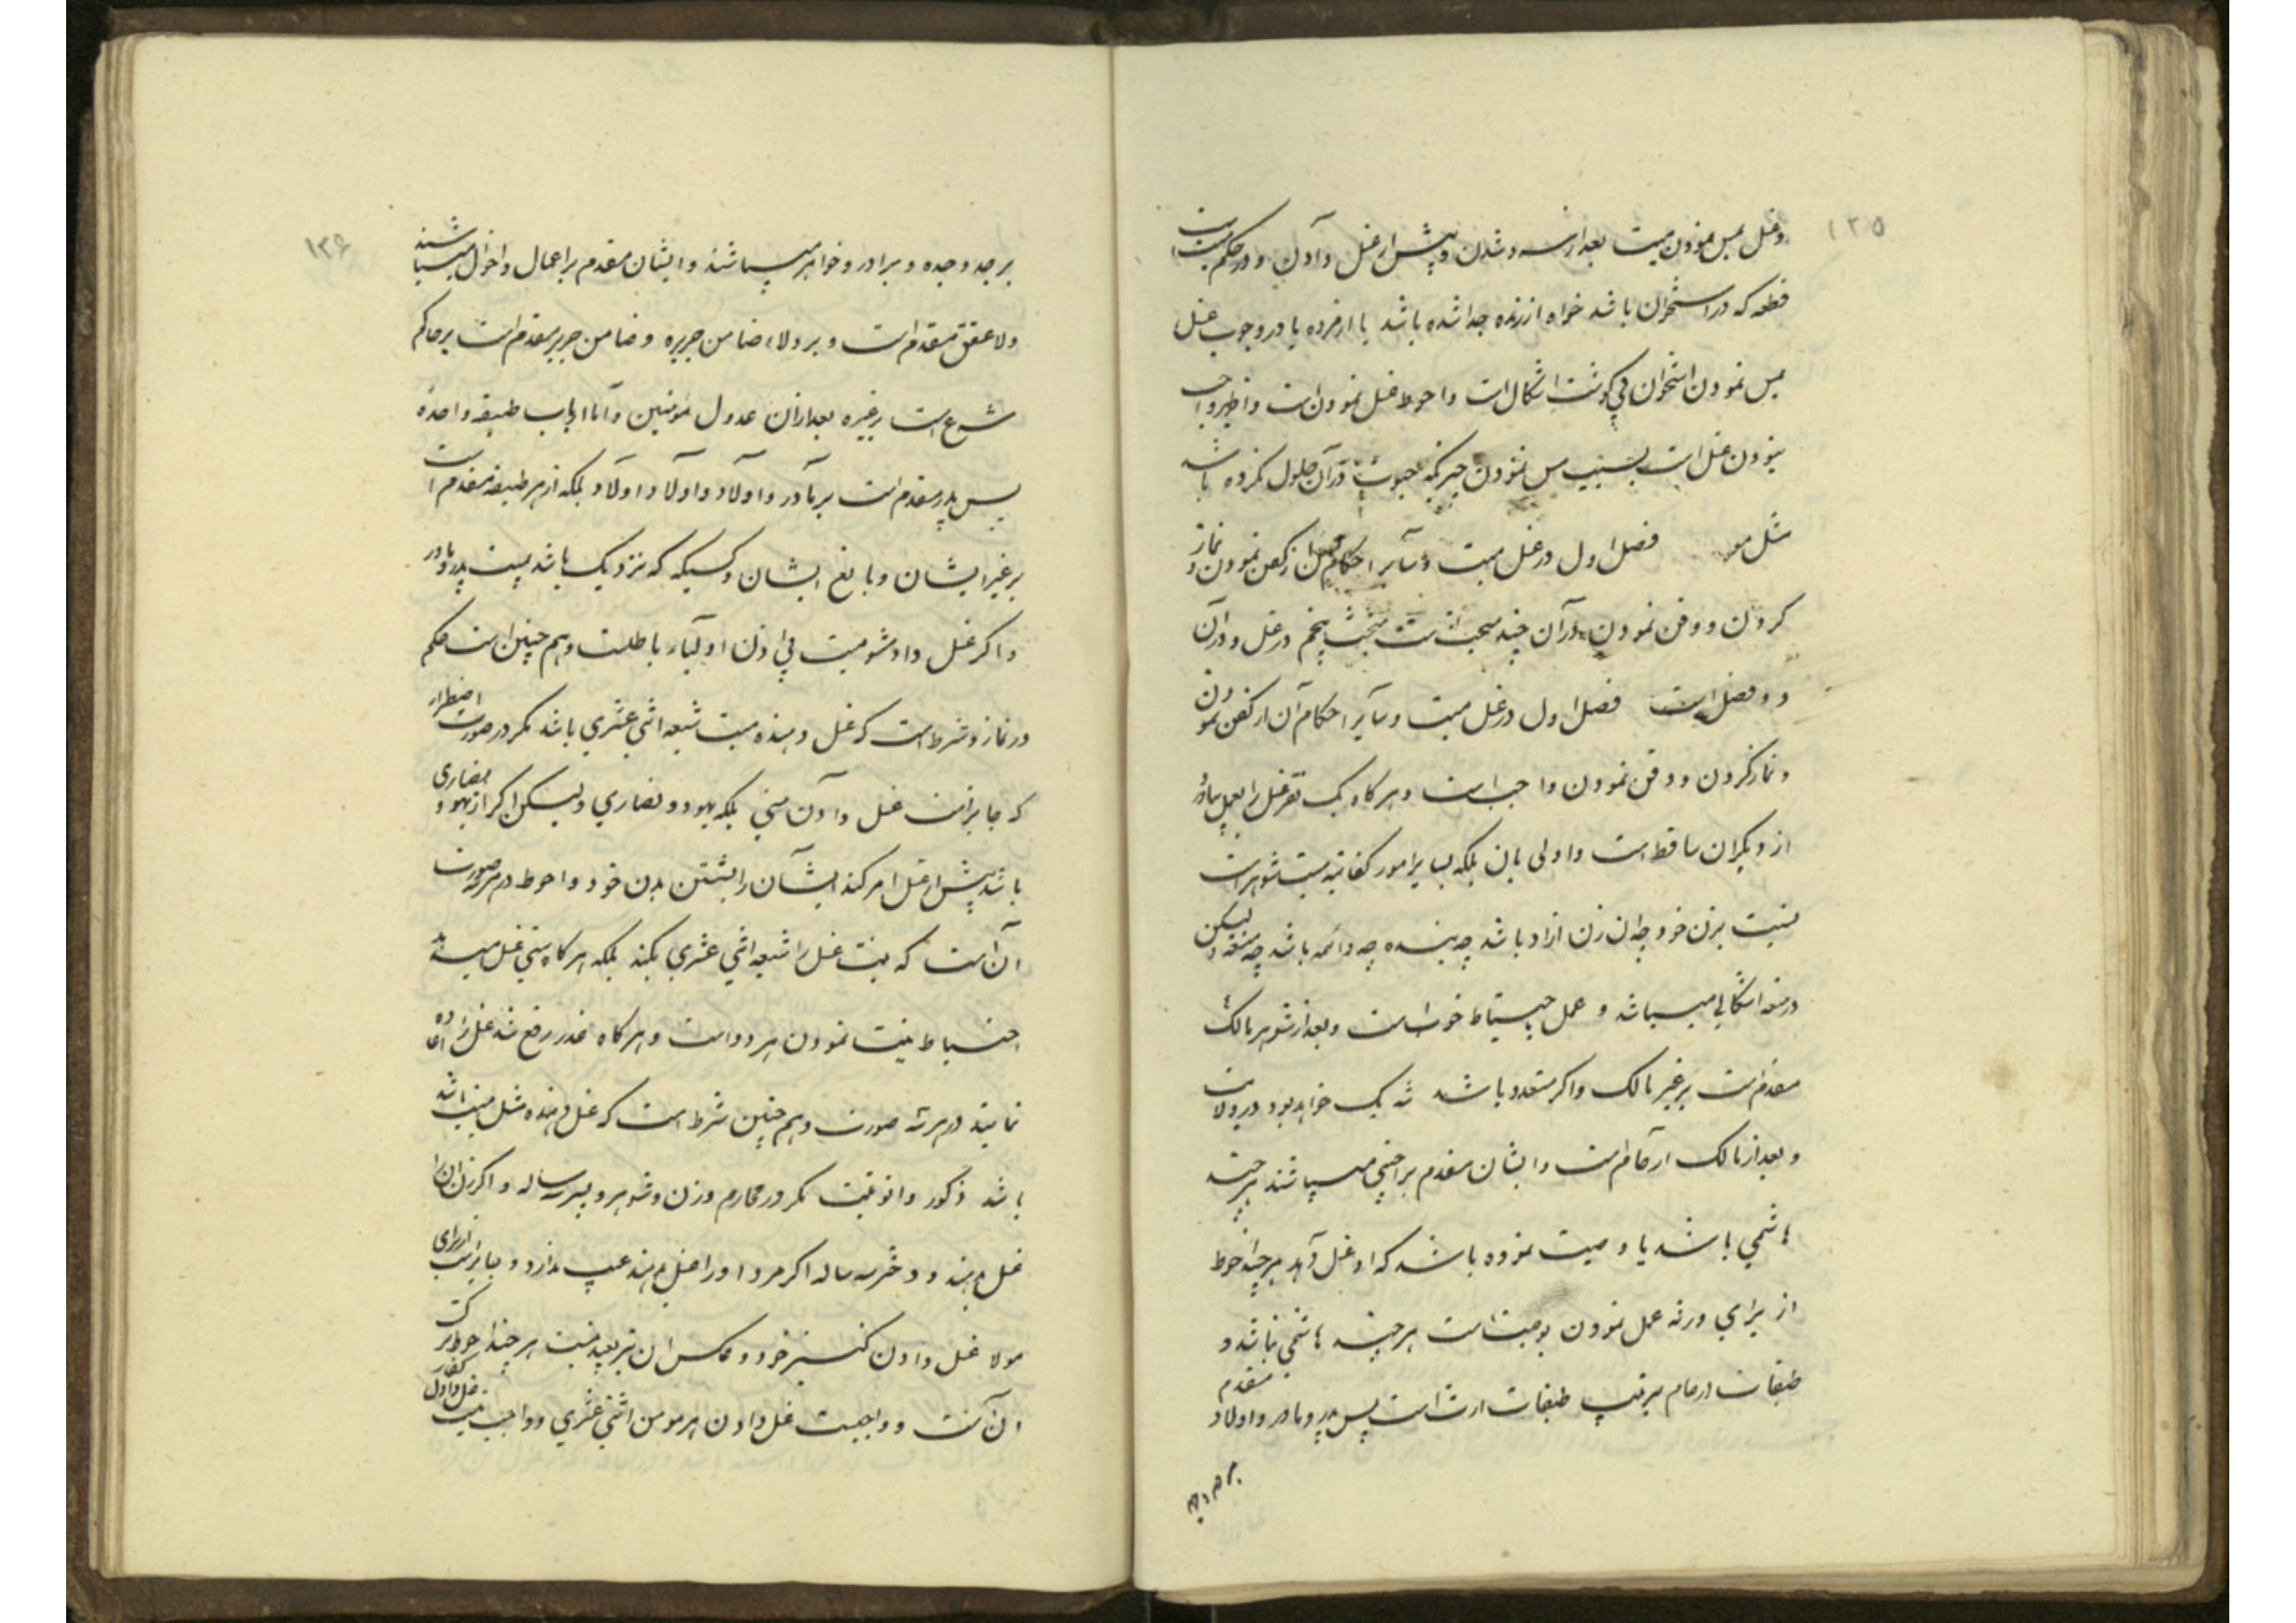 ۱۳۵
و غسل مس نمودن میت بعد از سرد شدن و پیش از غسل دادن و در حکم میت است
قطعه که در استخوان باشد خواه از زنده جدا شده باشد یا از مرده یا در وجوب غسل
بمس نمودن استخوان بی گوشت اشکال است و احوط غسل نمودن است و اظهر واجب
نبودن غسل است بسبب مس نمودن چیزیکه حیوة در آن حلول نکرده باشد
مثل مو فصل اول در غسل میت و سایر احکام آن از کفن نمودن و نماز
کردن و دفن نمودن در آن چند مبحث است مبحث پنجم در غسل و در آن
دو فصل است فصل اول در غسل میت و سایر احکام آن از کفن نمودن
و نماز کردن و دفن نمودن واجب است و هر کاه یک نفر غسل را بعمل بیاورد
از دیکران ساقط است و اولی بان بلکه بسایر امور کفائیه میت شوهر است
نسبت بزن خود چه ان زن ازاد باشد چه بنده چه دائمه باشد چه متعه و لیکن
در متعه اشکالی میباشد و عمل باحتیاط خوب است و بعد از شوهر مالک
مقدم است بر غیر مالک و اکر متعدد باشد شریک خواهد بود در ولایت
و بعد از مالک ارحام است و ایشان مقدم بر اجنبی میباشند هر چند
هاشمی باشد یا وصیت نموده باشد که او غسل دهد هر چند احوط
از برای ورثه عمل نمودن بوصیت است هر چند هاشمی نباشد و
طبقات ارحام بترتیب طبقات ارث است پس پدر و مادر و اولاد مقدم
بر جد و
۱۳۶
بر جد و جده و برادر و خواهر میباشند و ایشان مقدم بر اعمال و اخوال میباشند
ولاء عتق مقدم است و بر ولاء ضامن جریره و ضامن جریره مقدم است بر حاکم
شرع است بر غیره بعد از ان عدول مومنین و اما ارباب طبقه واحده
پس پدر مقدم است بر مادر و اولاد و اولاد اولاد بلکه از هر طبقه مقدم است
بر غیر ایشان و بالغ ایشان و کسیکه که نزدیک باشد بمیت پدر و مادر
و اکر غسل داده شود میت بی اذن اولیاء باطلست و هم چنین است حکم
در نماز و شرط است که غسل دهنده میت شیعه اثنی عشری باشد مکر در صورت اضطرار
که جایز است غسل دادن سنی بلکه یهود و نصاری و لیکن اکر از یهود و نصاری
باشد پیش از غسل امر کند ایشان را بشستن بدن خود و احوط در هر سه صورت
آن است که نیت غسل را شیعه اثنی عشری بکند بلکه هر کاه سنی غسل میدهد
احتیاط نیت نمودن هر دو است و هر کاه عذر رفع شد غسل را اعاده
نمایند در هر سه صورت و هم چنین شرط است که غسل دهنده مثل میت باشد
باشد ذکور و انوثیت مکر در محارم و زن و شوهر و پسر سه ساله و اکر زن ان را
غسل بدهند و دختر سه ساله اکر مرد او را غسل بدهند عیب ندارد و جایز است از برای
مولا غسل دادن کنیز خود و عکس ان نیز بعید نیست هر چند احوط ترک
ان است و واجبست غسل دادن هر مومن اثنی عشری و واجب نیست غسل دادن کفار